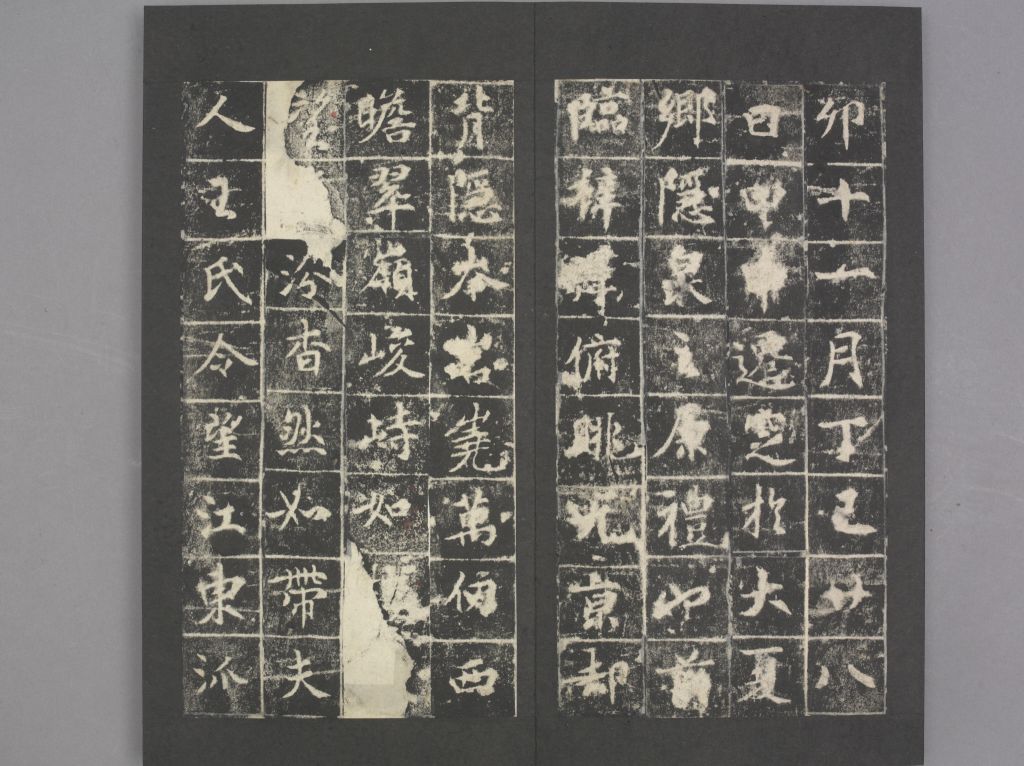 卯十一月丁巳廿八
日甲申遷窆於大夏
鄉隱泉之原禮也前
臨梓俯眺京却
背隱岧嶤萬仞西
瞻翠嶺峻峙如
汾杳然如帶夫
人王氏令望江東派